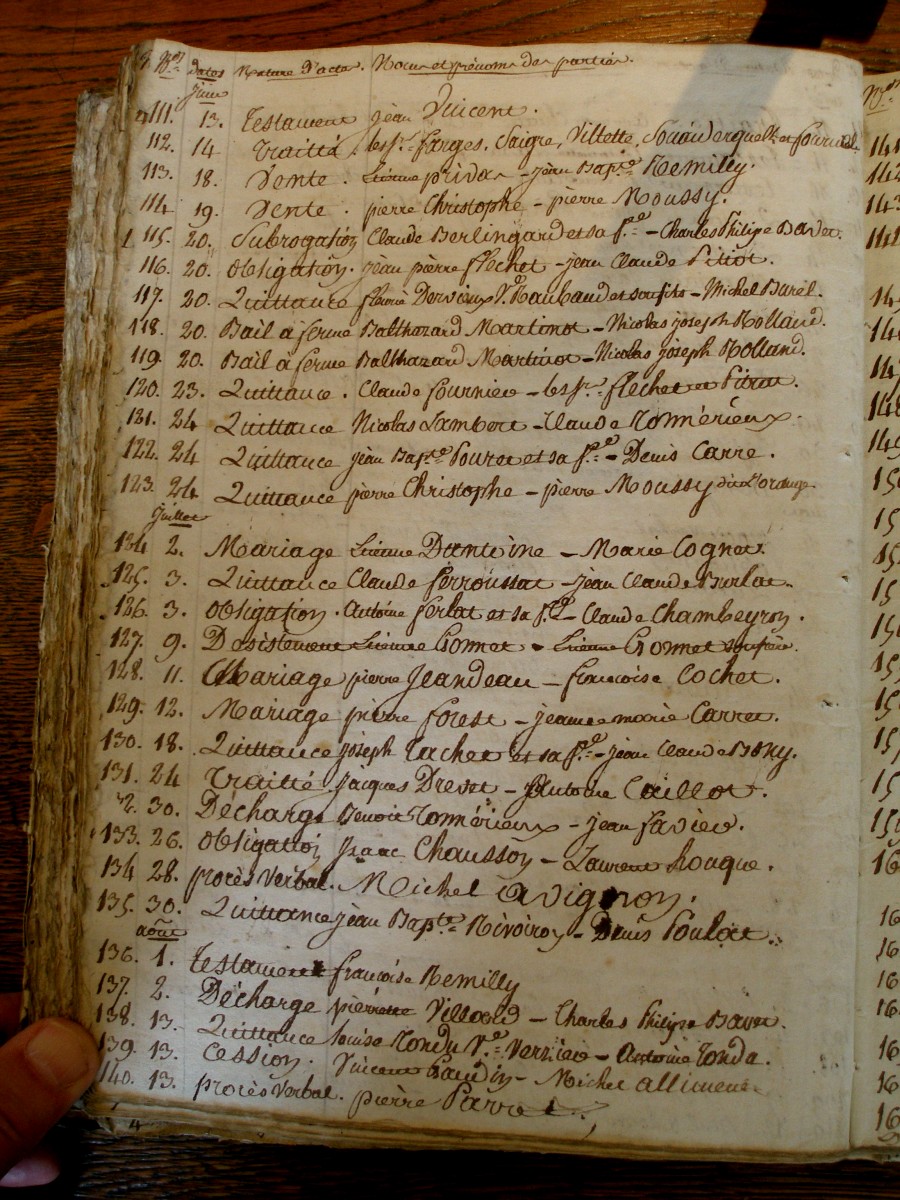 Nos dates Nature d'acte. Noms et prénoms des parties.
juin
111. 13. Testament jean Vincent.
112. 14 Traitté. les srs farges, Saigre, Villette,
113. 18. Vente. Etienne privas - jean Bapte Remilly.
114 19. Vente. pierre Christophe - pierre Moussy.
115. 20. Subrogation Claude Berlingard et sa fe - Charles Philipe Bavet.
116. 20. obligation. jean pierre flechet - jean Claude Pitiot.
117. 20. Quittance fleurie Dervieux Ve Raubaud et son fils - Michel Burel.
118. 20. Bail à ferme Balthazard Martinot - Nicolas joseph Rolland.
119. 20. Bail à ferme Balthazard Martinot - Nicolas joseph Rolland.
120. 23. Quittance. Claude fournier - les srs flechet et Pitiot.
121. 24 Quittance Nicolas Lambert - Claude Romérieux.
122. 24 Quittance jean Bapte Pouret et sa fe - Denis Carre.
123. 24 Quittance pierre Christophe - pierre Moussy dit L'orange
juillet
134 2. Mariage Etienne Dantoine - Marie Cognet.
125. 3. Quittance Claude ferroussat - jean Claude Burlat.
126. 3. obligation. Antoine ferlat et sa fe - Claude Chambeyron.
127. 9. Desistement Etienne Gonnet - Etienne Gonnet son père.
128. 11. Mariage pierre Jeandeau - francoise Cochet.
129. 12. Mariage pierre forest - jeanne marie Carret.
130. 18. Quittance joseph Tachet et sa fe - jean Claude Bony.
131. 24 Traitté. Jacques Drevet - Antoine Caillot.
2. 30. Décharge Benoit Romérieux - jean favier.
133. 26. obligation Isaac Chausson - Laurent
134 28. procès Verbal. Michel avignon.
135. 30. Quittance jean Bapte Rivoiron - Denis Poulat.
août
136. 1. Testament françoise Remilly
137. 2. Décharge pierrette Villard - Charles Philipe Bavet.
138. 13. Quittance louise Rondu Ve Vernier - Antoine
139. 13. Cession. Vincent - Michel
140. 13. procès Verbal. pierre Parret.